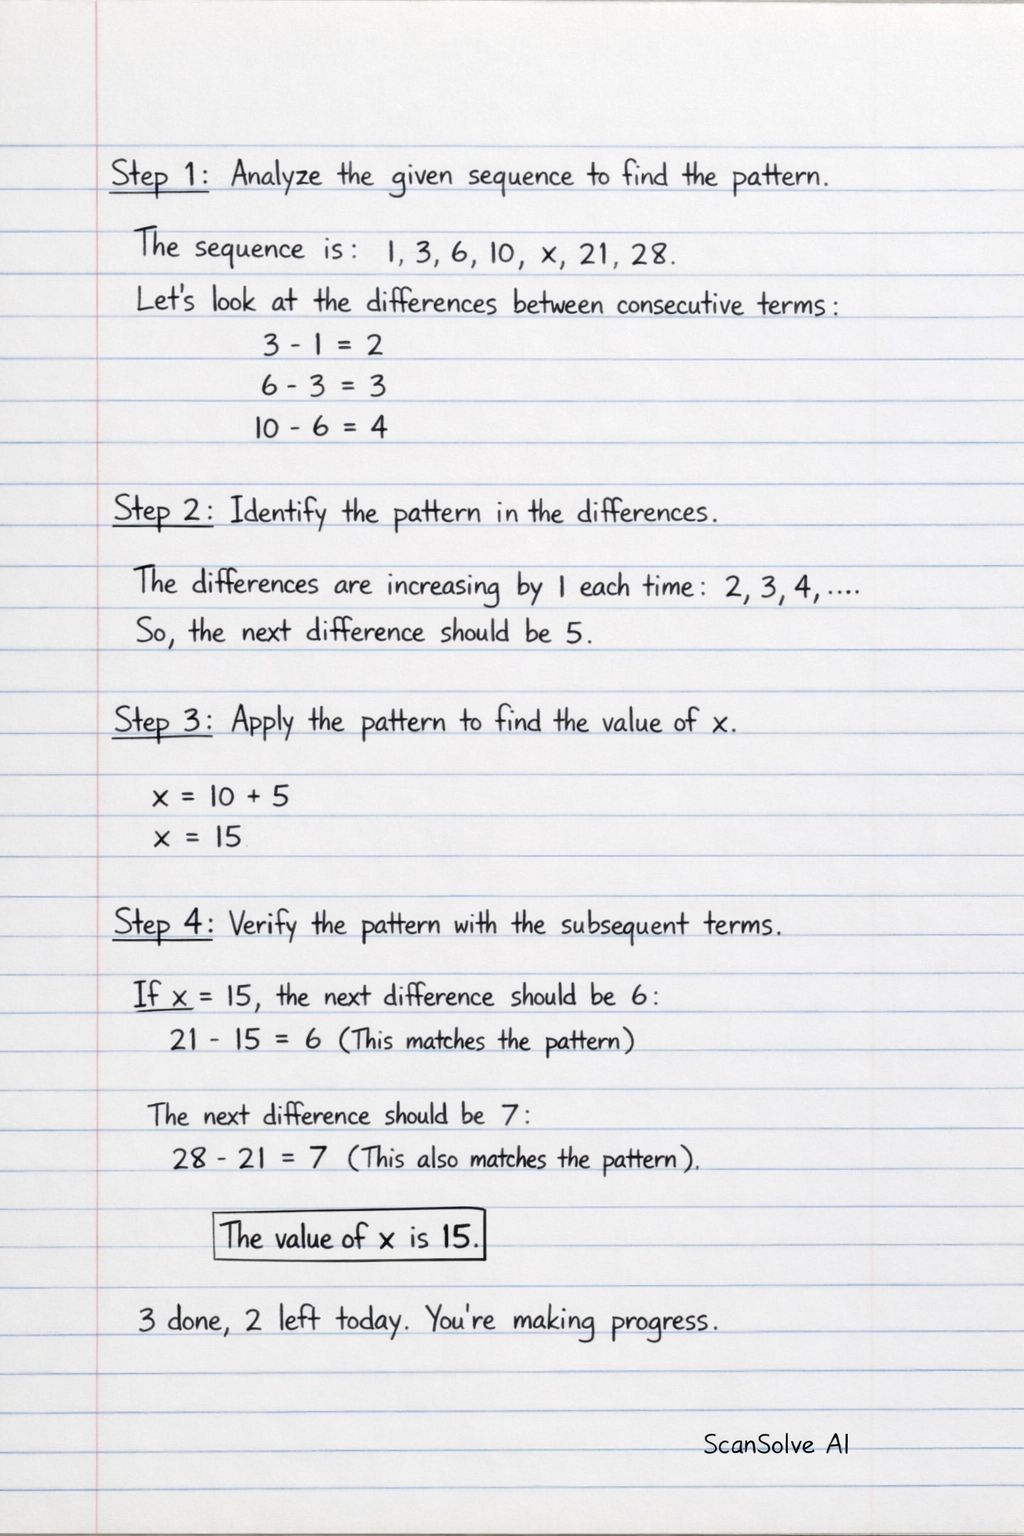 Step 1: Analyze the given sequence to find the pattern.
The sequence is: 1, 3, 6, 10, x, 21, 28.
Let's look at the differences between consecutive terms:
3 - 1 = 2
6 - 3 = 3
10 - 6 = 4
Step 2: Identify the pattern in the differences.
The differences are increasing by 1 each time: 2, 3, 4, ....
So, the next difference should be 5.
Step 3: Apply the pattern to find the value of x.
x = 10 + 5
x = 15
Step 4: Verify the pattern with the subsequent terms.
If x = 15, the next difference should be 6:
21 - 15 = 6 (This matches the pattern)
The next difference should be 7:
28 - 21 = 7 (This also matches the pattern).
The value of x is 15.
3 done, 2 left today. You're making progress.
ScanSolve AI